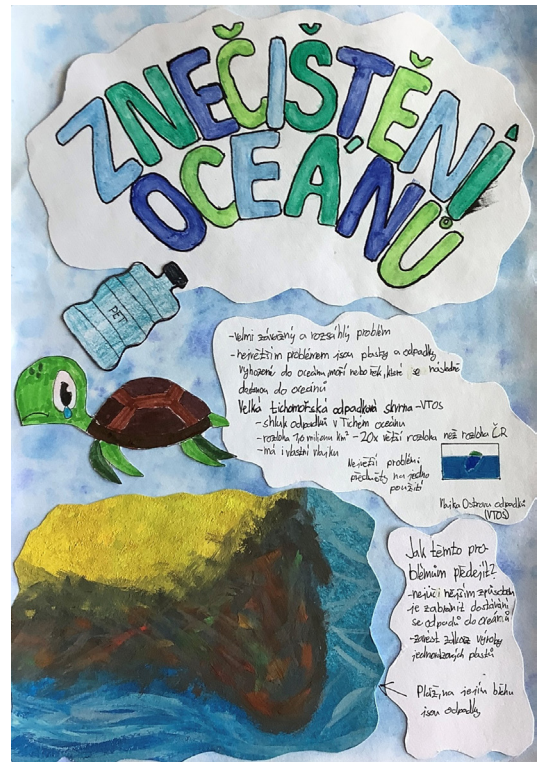 ZNEČIŠTĚNÍ
OCEÁNŮ
PET
-velmi závažný a rozsáhlý problém
-největším problémem jsou plasty a odpadky
vyhozené do oceánu, moří nebo řek, které se následně
dostanou do oceánů
Velká tichomořská odpadková skvrna-VTOS
-shluk odpadků v Tichém oceánu
-rozloha 1,6 milionu km² -20x větší rozloha než rozloha ČR
-má i vlastní vlajku
Největší problém:
předměty na jedno
použití
Vlajka Ostrova odpadků
(VTOS)
Jak těmto pro-
blémům předejít?
-nejúčinějším způsobem
je zabránit dostávání
se odpadů do oceánů
-zavést zákaz výroby
jednorázových plastů
Pláž, na jejím břehu
jsou odpadky